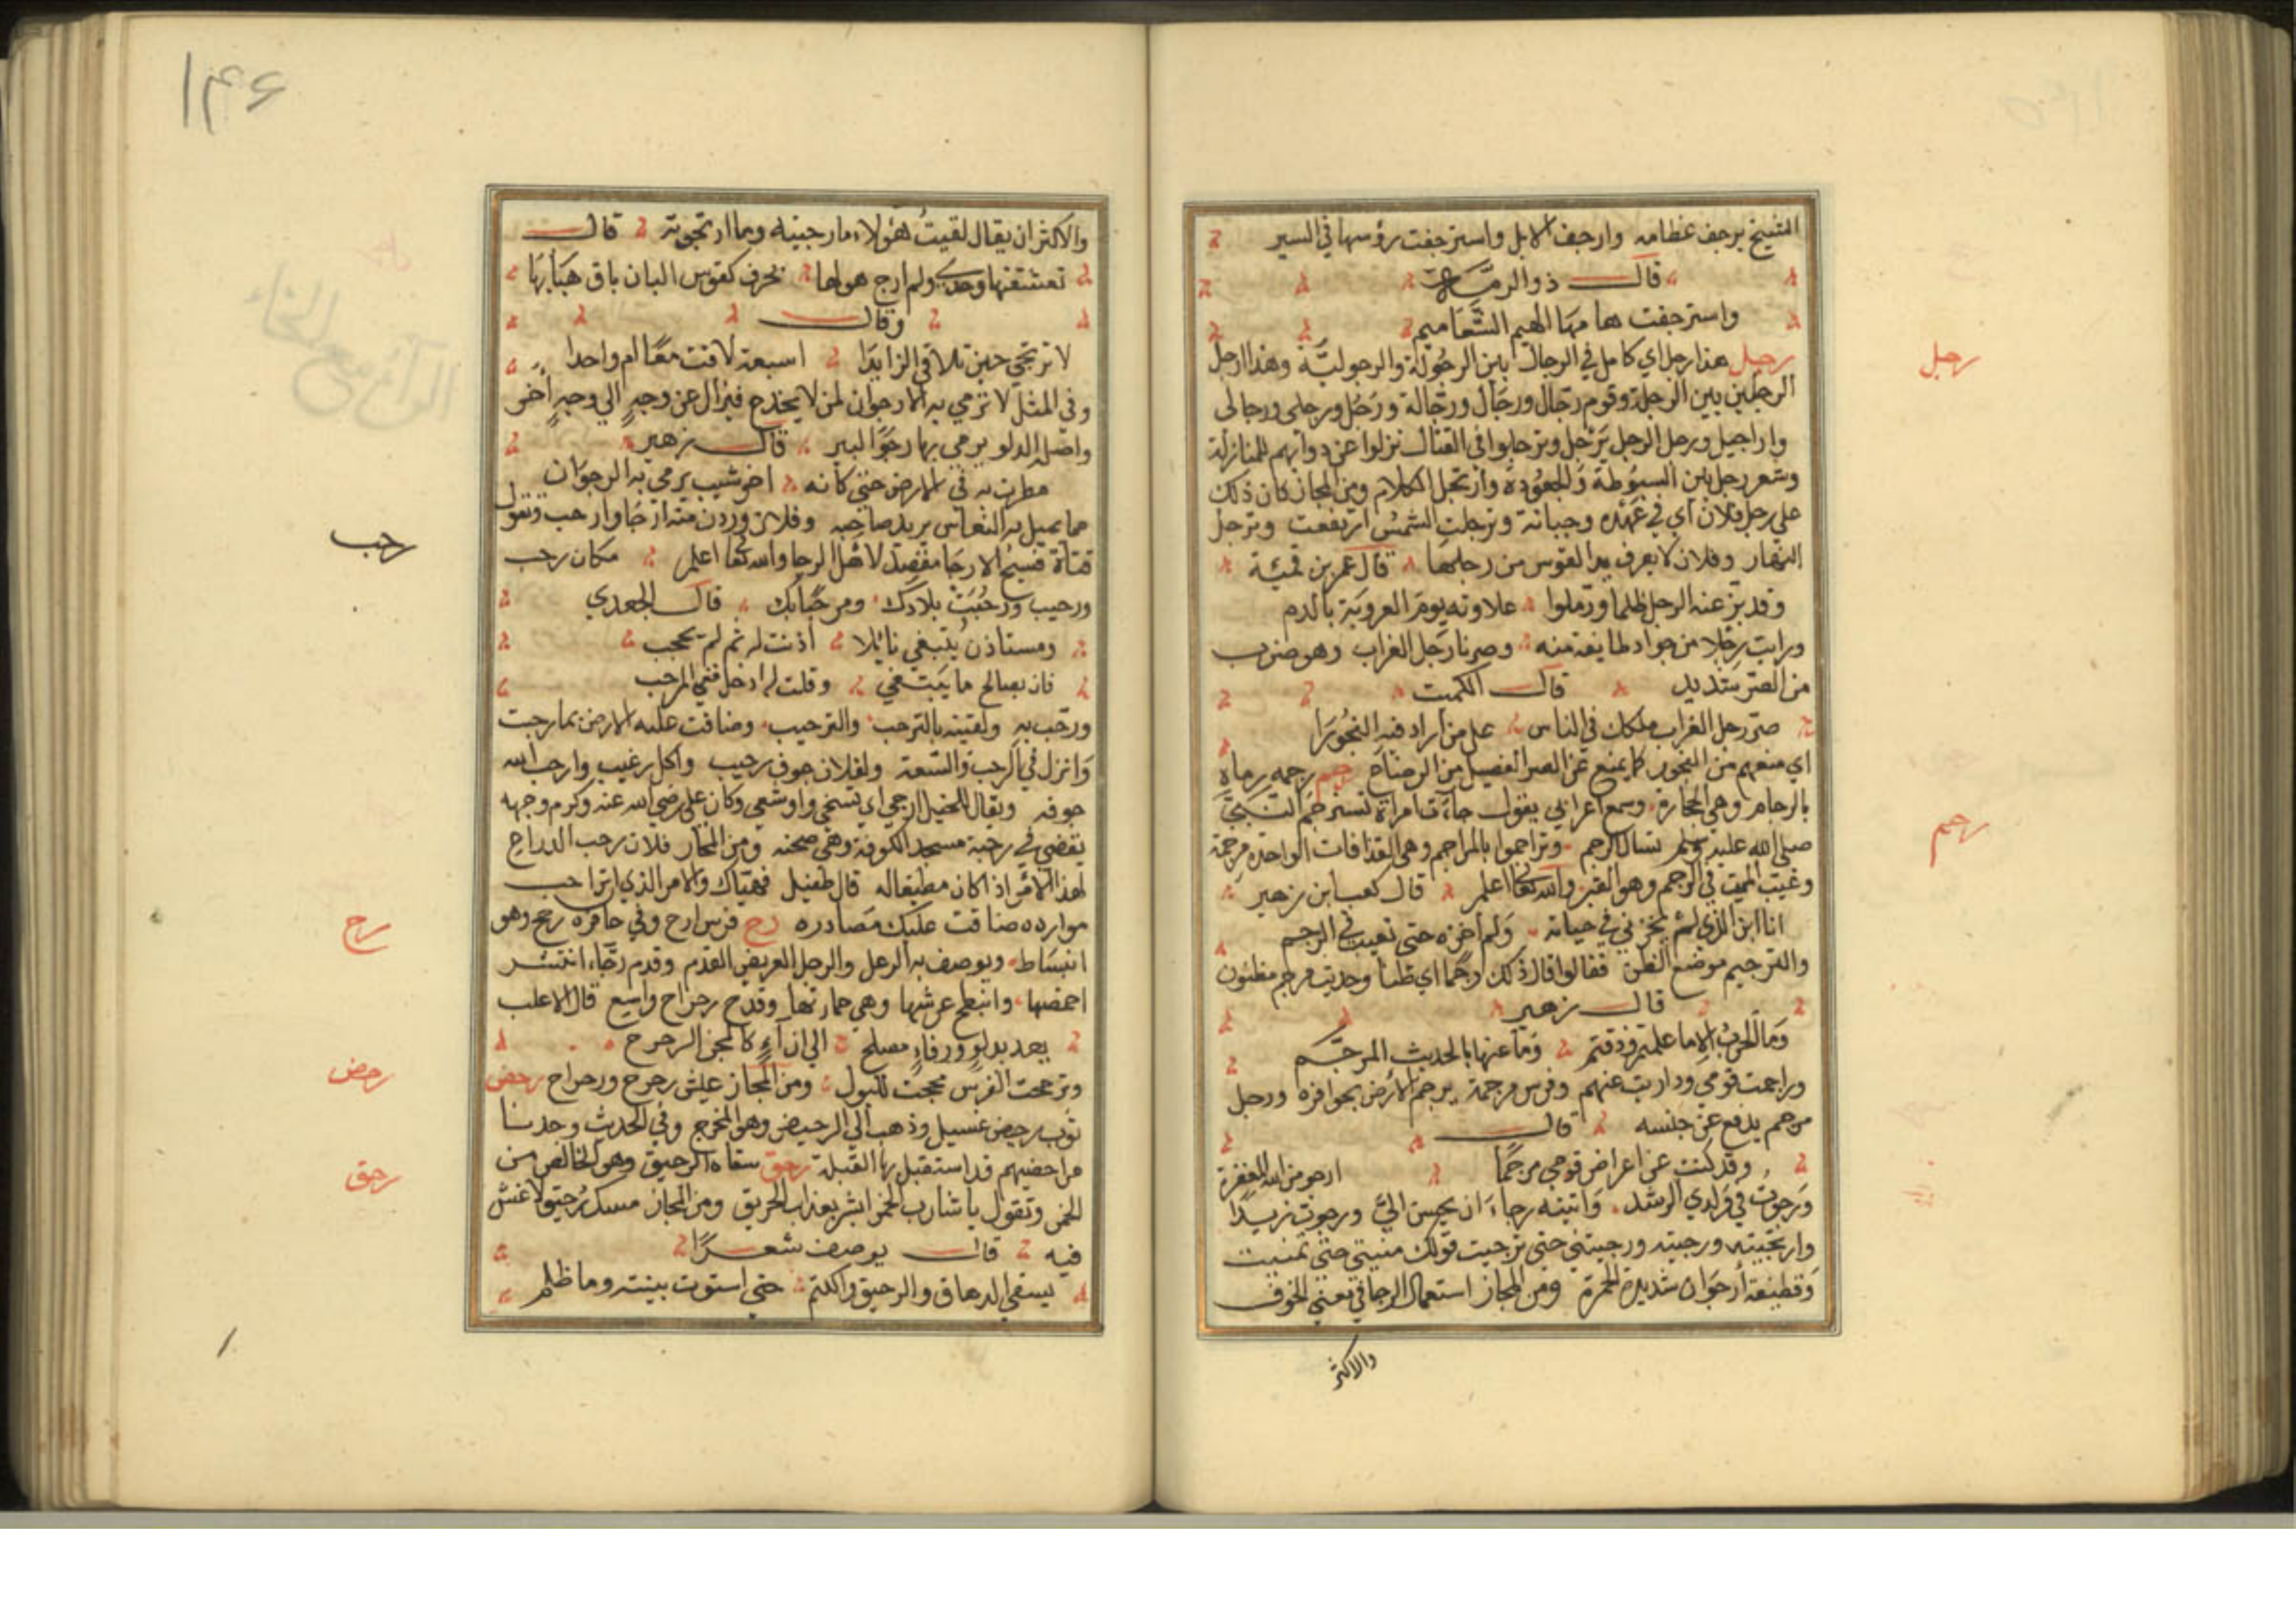 الشيخ يرجف عظامه وارجف الابل واسترجفت رؤسها في السير
قال ذو الرمة
واسترجفت هامها الهيم الشغاميم
رجل هذا رجل اي كامل في الرجال بين الرجولة والرجولية وهذا ارجل
الرجلين بين الرجلة وقوم رجال ورجال ورجالة ورجل ورجلى ورجالى
واراجيل ورجل الرجل يرجل وترجلوا في القتال نزلوا عن دوابهم للمنازلة
وشعر رجل بين السبوطة والجعودة وارتجل الكلام ومن المجاز كان ذلك
على رجل فلان اي في عهده وحياته وترجلت الشمس ارتفعت وترجل
النهار وفلان لا يعرف يد القوس من رجلها قال عمر بن قميئة
وقد بز عنه الرجل ظلما ورملوا علاوته يوم العروبة بالدم
ورايت رجلا من جراد طايفة منه وصرنا رجل الغراب وهو ضرب
من الصر شديد قال الكميت
صر رجل الغراب ملكك في الناس على من اراد فيه الفجورا
اي منعهم من الفجور كما يمنع عن الصر الفصيل من الرضاع رجم رجمه رماه
بالرجام وهي الحجارة وسمع اعرابي يقول جاءت امراة تسترجم النبي
صلى الله عليه وسلم تسال الرجم وتراجموا بالمراجم وهي القذافات الواحدة مرجمة
وغيب الميت في الرجم وهو القبر والله تعالى اعلم قال كعب ابن زهير
انا ابن الذي لم يخزني في حياته ولم اخزه حتى تغيب في الرجم
والترجيم موضع الظن فقالوا قال ذلك رجما اي ظنا وحديث مرجم مظنون
قال زهير
وما الحرب الا ما علمتم وذقتم وما عنها بالحديث المرجم
وراجمت قومي وداريت عنهم وفرس مرجمة يرجم الارض بحوافره ورجل
مرجم يدفع عن جنسه قال
وقد كنت عن اعراض قومي مرجما ارجو من الله المغفرة
ورجوت في ولدي الرشد واتيته رجاء ان يحسن الي ورجوت زيدا
وارتجيته ورجيته ورجيتني حتى ترجيت قولك منيتي حتى تمنيت
وقطيفة ارجوان شديدة الحمرة ومن المجاز استعمال الرجا في معنى الخوف
والاكثر
رجل
رجم
١٤٦
والاكثر ان يقال لقيت هؤلاء ما رجيته وما ارتجوته قال
تعشقتها وحدي ولم ارج هولها بحرف كقوس البان باق هبابها
وقال
لا ترتجي حين تلاقي الزايدا اسبعة لاقت معا ام واحدا
وفي المثل لا ترمي به الارجوان لمن لا يخدع فيزال عن وجه الي وجه اخر
واصله الدلو يرمي بها رجوا البير قال زهير
مطرت به في الارض حتى كانه اخو شيب يرمي به الرجوان
مما يميل به النعاس يريد صاحبه وفلان وردن منه ارجا وارحب وتقول
فتاة فسيح الارجا مقصد لاهل الرجا والله تعالى اعلم مكان رحب
ورحيب ورحبت بلادك ومرحبا بك قال الجعدي
ومستاذن يبتغي نائلا اذنت له ثم لم يحجب
فان يصالح ما يبتغي وقلت له ادخل ففي المرحب
ورحب به ولقيته بالترحب والترحيب وضاقت عليه الارض بما رحبت
وانزل في الرحب والسعة ولفلان جوف رحيب واكل رغيب وارحب الله
جوفه ويقال للخيل ارحبي اي تسخي واوسعي وكان علي رضي الله عنه وكرم وجهه
يقضي في رحبة مسجد الكوفة وهي صحنه ومن المجاز فلان رحب الذراع
لهذا الامر اذا كان مطيقا له قال طفيل فهياك والامر الذي ان تراحبت
موارده ضاقت عليك مصادره رح فرس ارح وفي حافره رحح وهو
انبساط ويوصف به الوعل والرجل العريض القدم وقدم رحاء انتشر
اخمصها وانبطح عرشها وهي حمارتها وقدح رحراح واسع قال الاغلب
يعد بدلو ورفاء مصلح الي ازاء كالمجن الرحرح
وترحرحت الفرس فحجت للبول ومن المجاز عيش رحرح ورحراح رحض
ثوب رحيض غسيل وذهب الي الرحيض وهو المخرج وفي الحديث وجدنا
مراحضيهم قد استقبل بها القبلة رحق سقاه الرحيق وهو الخالص من
الخمر وتقول يا شارب الخمر ابشر بعذاب الحريق ومن المجاز مسك رحيق لا غش
فيه قال يوصف شعرا
يسقى الدهاق والرحيق والكتم حتى استوت بينته وما ظلم
رحب
رح
رحض
رحق